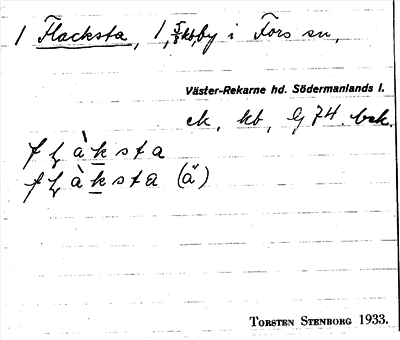 1 Flacksta, 1, by i Fors sn,
Väster-Rekarne hd. Södermanlands l.
ek, kb, G 74. bek.
flàksta
flàksta (ä)
TORSTEN STENBORG 1933.